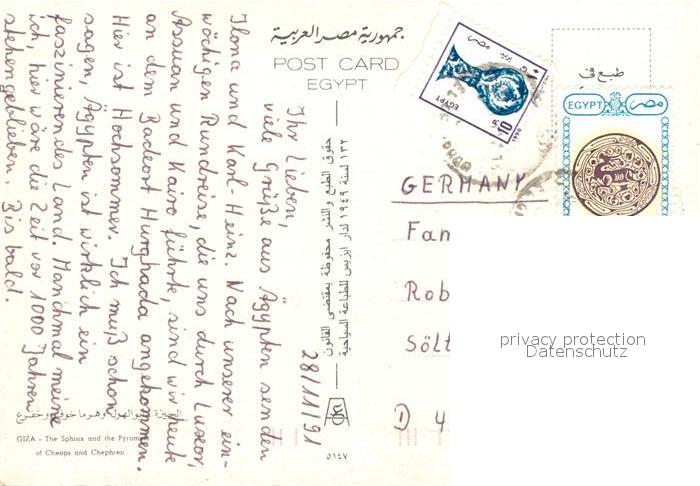 جمهورية مصر العربية
POST CARD
EGYPT
28/11/91
Ihr Lieben,
viele Grüße aus Ägypten senden
Ilona und Karl-Heinz. Nach unserer ein-
wöchigen Rundreise, die uns durch Luxor,
Assuan und Kairo führte, sind wir heute
an dem Badeort Hurghada angekommen.
Hier ist Hochsommer. Ich muß schon
sagen, Ägypten ist wirklich ein
faszinierendes Land. Manchmal meine
ich, hier wäre die Zeit vor 1000 Jahren
stehengeblieben. Bis bald.
حقوق الطبع والنشر محفوظة بمقتضى القانون
١٣٢ لسنة ١٩٤٩ لدار ايزيس للطباعة السياحية
الجيزة
GIZA - The Sphinx and the Pyramids
of Cheops and Chephren
٥١٤٧
بريد مصر
EGYPT
10
طبع في
EGYPT مصر
GERMANY
Fan
Rob
Sölt
D 4
privacy protection
Datenschutz